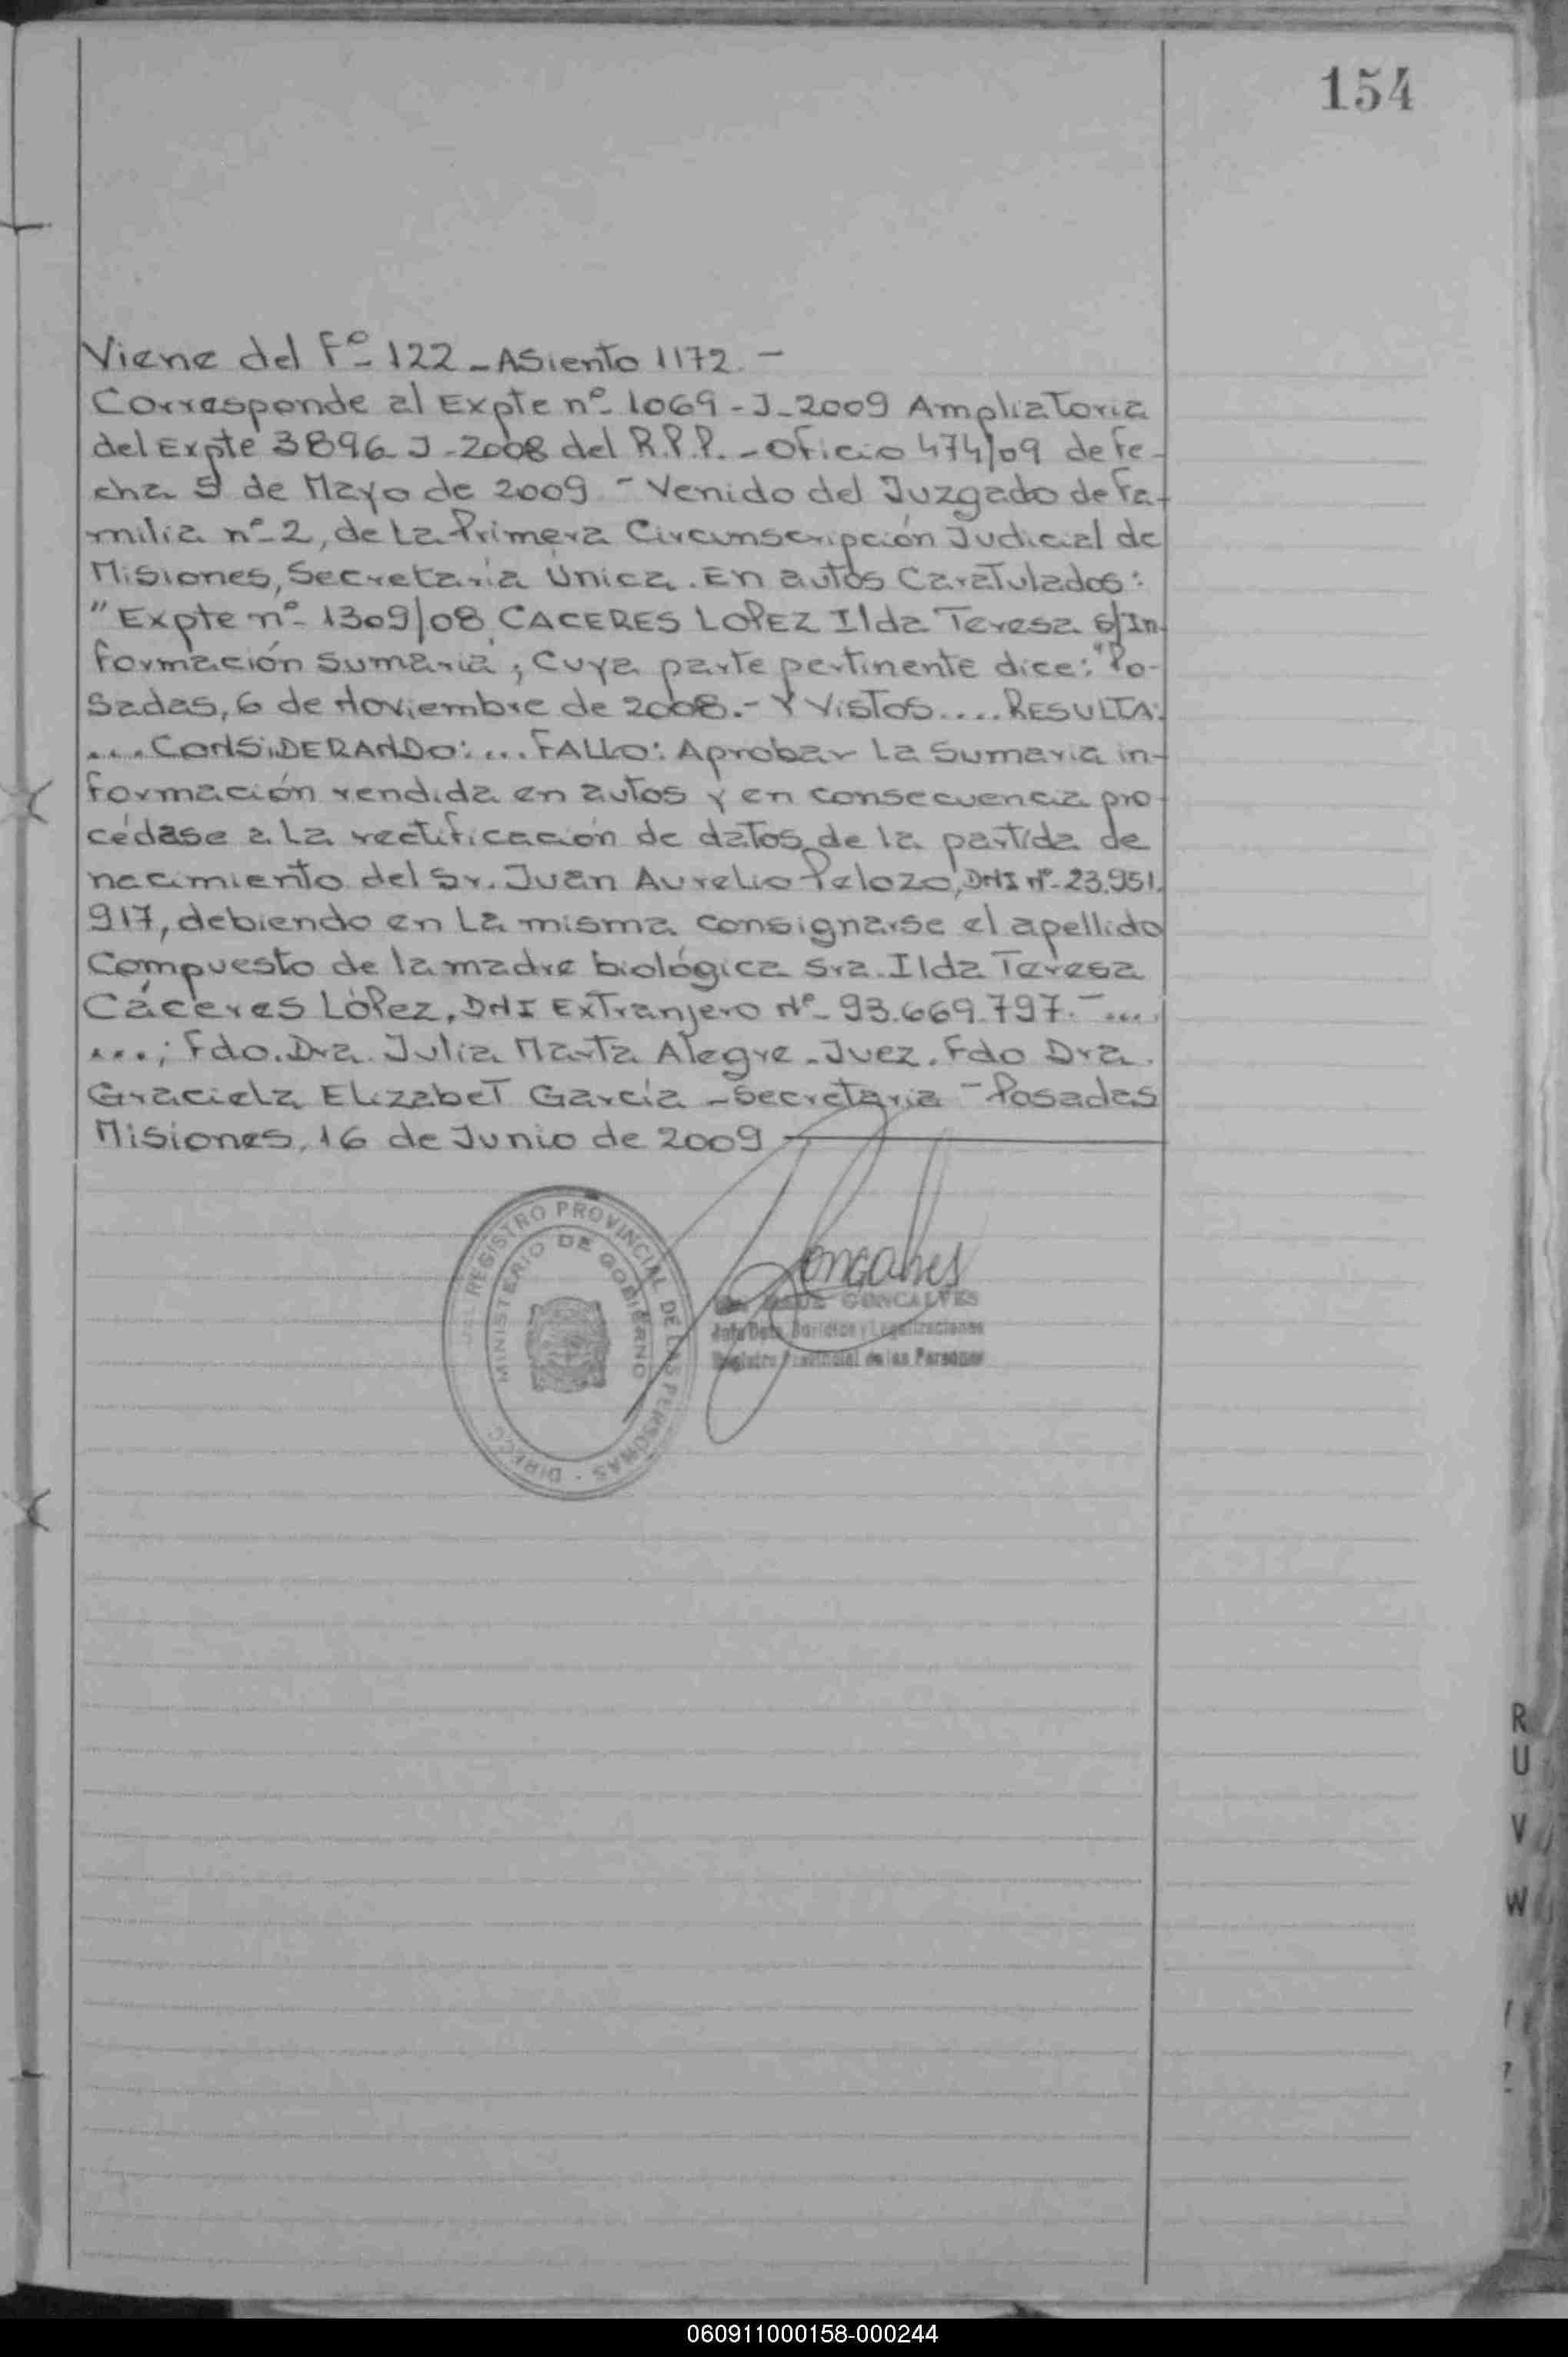 154
Viene del Fº 122 - Asiento 1172. -
Corresponde al Expte nº 1069 - J - 2009 Ampliatoria
del Expte 3896 - J - 2008 del R.P.P. - Oficio 474/09 de fe-
cha 5 de Mayo de 2009 - Venido del Juzgado de Fa-
milia nº 2, de La Primera Circunscripción Judicial de
Misiones, Secretaría Única. En autos Caratulados:
"Expte nº 1309/08 CACERES LOPEZ Ilda Teresa S/In-
formación Sumaria", Cuya parte pertinente dice: "Po-
sadas, 6 de Noviembre de 2008.- Y Vistos.... RESULTA:
.... CONSIDERANDO: ... FALLO: Aprobar La Sumaria in-
formación rendida en autos y en consecuencia pro-
cédase a La rectificación de datos de la partida de
nacimiento del Sr. Juan Aurelio Pelozo, DNI Nº 23.951.
917, debiendo en La misma consignarse el apellido
Compuesto de la madre biológica Sra. Ilda Teresa
Cáceres López, DNI Extranjero Nº 93.669.797. - ....
...; Fdo. Dra. Julia Marta Alegre - Juez. Fdo Dra.
Graciela Elizabet García - Secretaria - Posadas
Misiones, 16 de Junio de 2009
REGISTRO PROVINCIAL DE LAS PERSONAS - DIRECC
MINISTERIO DE GOBIERNO
GONCALVES
Jefe Dpto. Jurídico y Legalizaciones
Registro Provincial de las Personas
R
U
V
W
Z
060911000158-000244